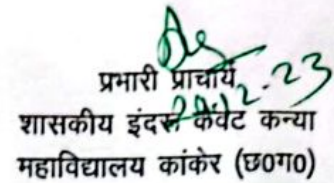 प्रभारी प्राचार्य
शासकीय इंदरू केंवट कन्या
महाविद्यालय कांकेर (छ0ग0)